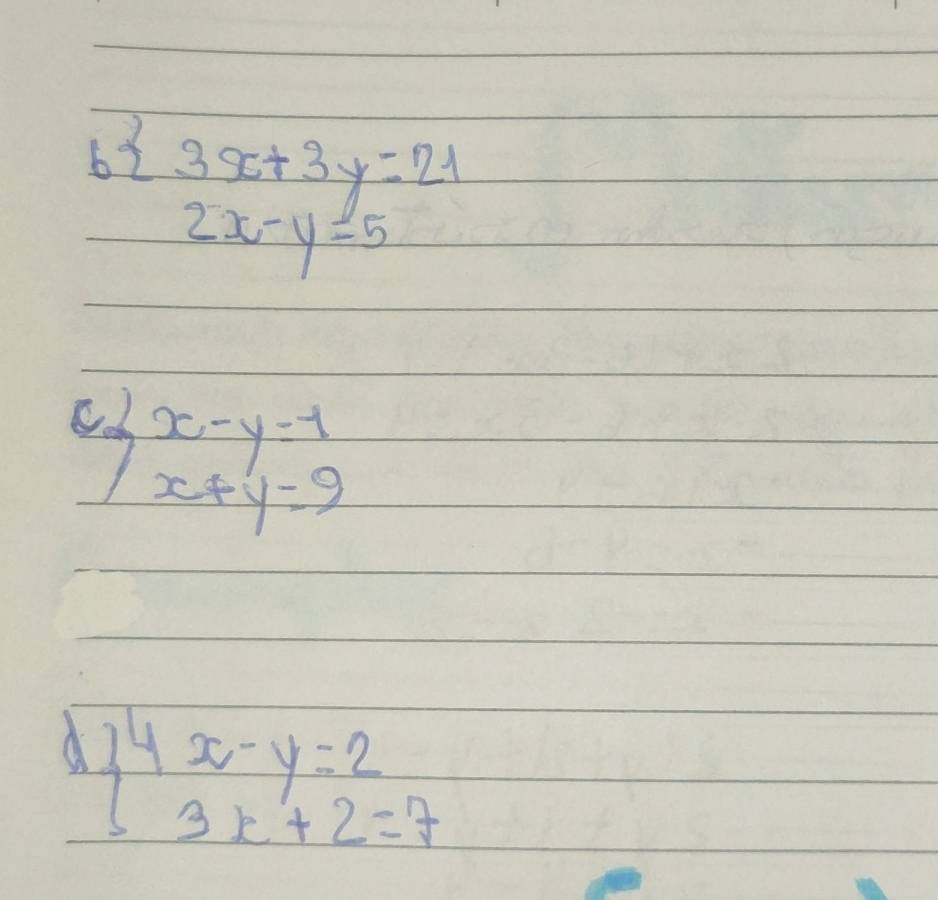 b} 3x+3y=21
2x-y=5
c} x-y=1
x+y=9
d} 4x-y=2
3x+2=7